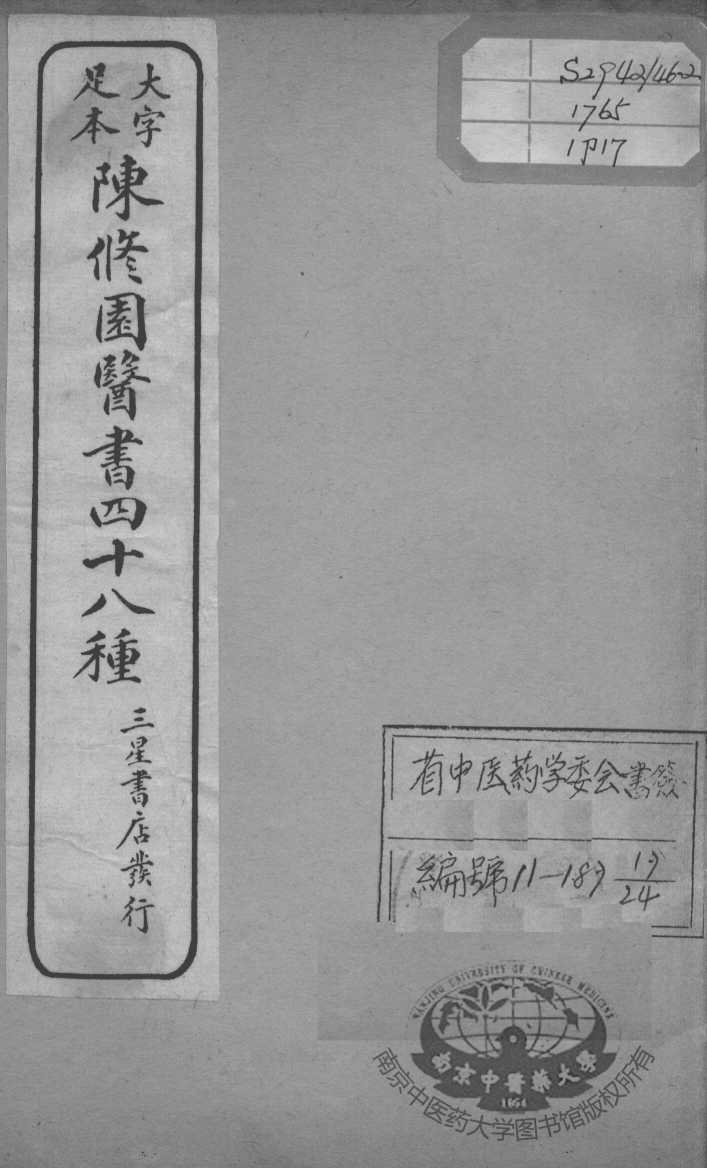 大字
足本
陳修園醫書四十八種
三星書店發行
S2942/46-2
1765
1P17
省中医药学委会書簽
編號11-187 17/24
NANJING UNIVERSITY OF CHINESE MEDICINE
南京中醫藥大學
1954
南京中医药大学图书馆版权所有